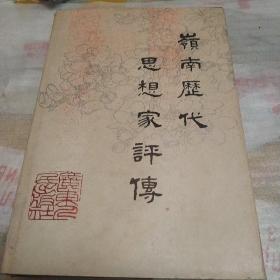 嶺南歷代
思想家評傳